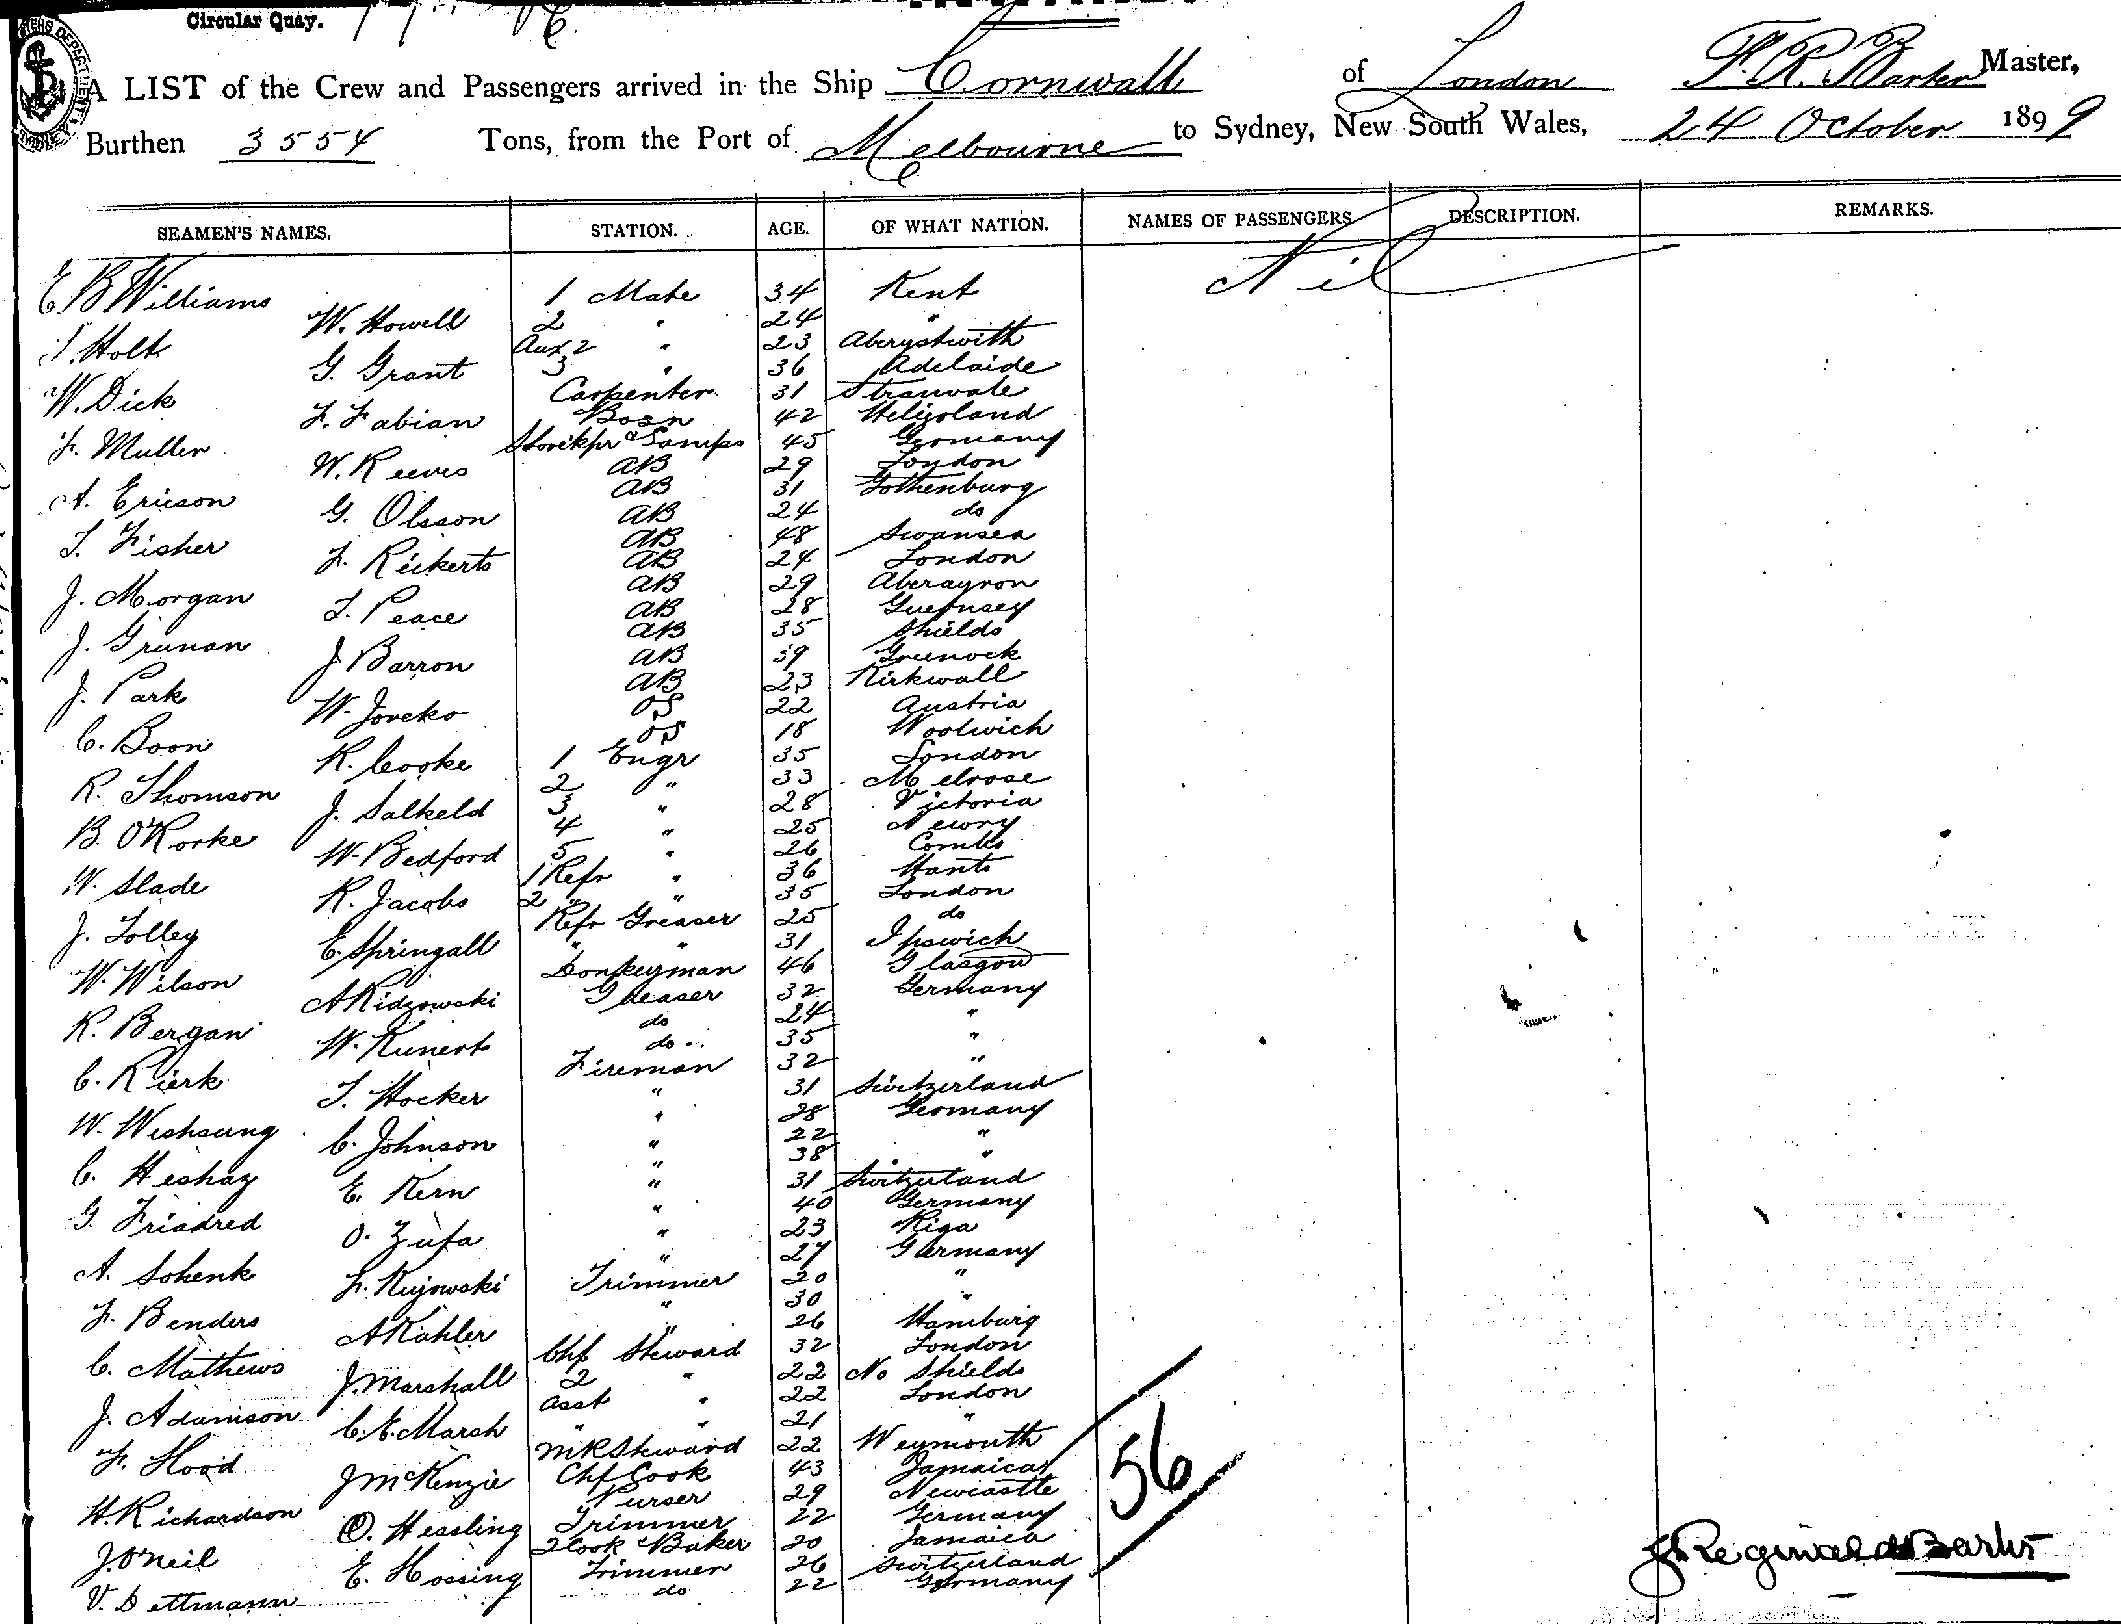 Circular Quay.
A LIST of the Crew and Passengers arrived in the Ship Cornwall of London F. R. Barker Master,
Burthen 3554 Tons, from the Port of Melbourne to Sydney, New South Wales, 24 October 1899
SEAMEN'S NAMES. STATION. AGE. OF WHAT NATION. NAMES OF PASSENGERS DESCRIPTION. REMARKS.
E B Williams 1 Mate 34 Kent Nil
W. Howell 2 " 24 "
Holt Aux 2 " 23 Aberystwith
G. Grant 3 " 36 Adelaide
W. Dick Carpenter 31
F. Fabian Bosn 42 Heligoland
F. Muller Storekpr & Lamps 45 Germany
W. Reeves AB 29 London
A. Ericson AB 31 Gothenburg
G. Olsson AB 24 do
T. Fisher AB 48 Swansea
F. Rickerts AB 24 London
J. Morgan AB 29 Aberayron
T. Peace AB 28 Guernsey
J. Grunan AB 35 Shields
J Barron AB 39 Greenock
J. Park AB 23 Kirkwall
W. Joreko OS 22 Austria
C. Boon OS 18 Woolwich
R. Cooke 1 Engr 35 London
R. Thomson 2 " 33 Melrose
J. Salkeld 3 " 28 Victoria
B. O'Rorke 4 " 25 Newry
W. Bedford 5 " 26
W. Slade 1 Refr " 36 Hants
R. Jacobs 2 " " 35 London
J. Tolley Refr Greaser 25 do
E. Springall " " 31 Ipswich
W. Wilson Donkeyman 46 Glasgow
A Ridzowski Greaser 32 Germany
R. Bergan do 24 "
W. Kunert do 35 "
C. Rierk Fireman 32 "
T. Hocker " 31 Switzerland
W. " 28 Germany
C. Johnson " 22 "
C. Heshay " 38 "
E. Kern " 31 Switzerland
G. Friadred " 40 Germany
O. Zufa " 23 Riga
A. Schenk " 27 Germany
F. Kujowski Trimmer 20 "
F. Benders " 30 "
A Kahler " 26 Hamburg
C. Mathews Chf Steward 32 London
J. Marshall 2 " 22 No Shields
J. Adamson asst " 22 London
C. E. Marsh " " 21 "
F. Hood MR Steward 22 Weymouth
J McKenzie Chf Cook 43 Jamaica
H. Richardson Purser 29 Newcastle
O. Hessling Trimmer 22 Germany
J. O'Neil 2 Cook & Baker 20 Jamaica
E. Hossing Trimmer 26 Switzerland
V. Dettmann do 22 Germany
56
F Reginald Barker